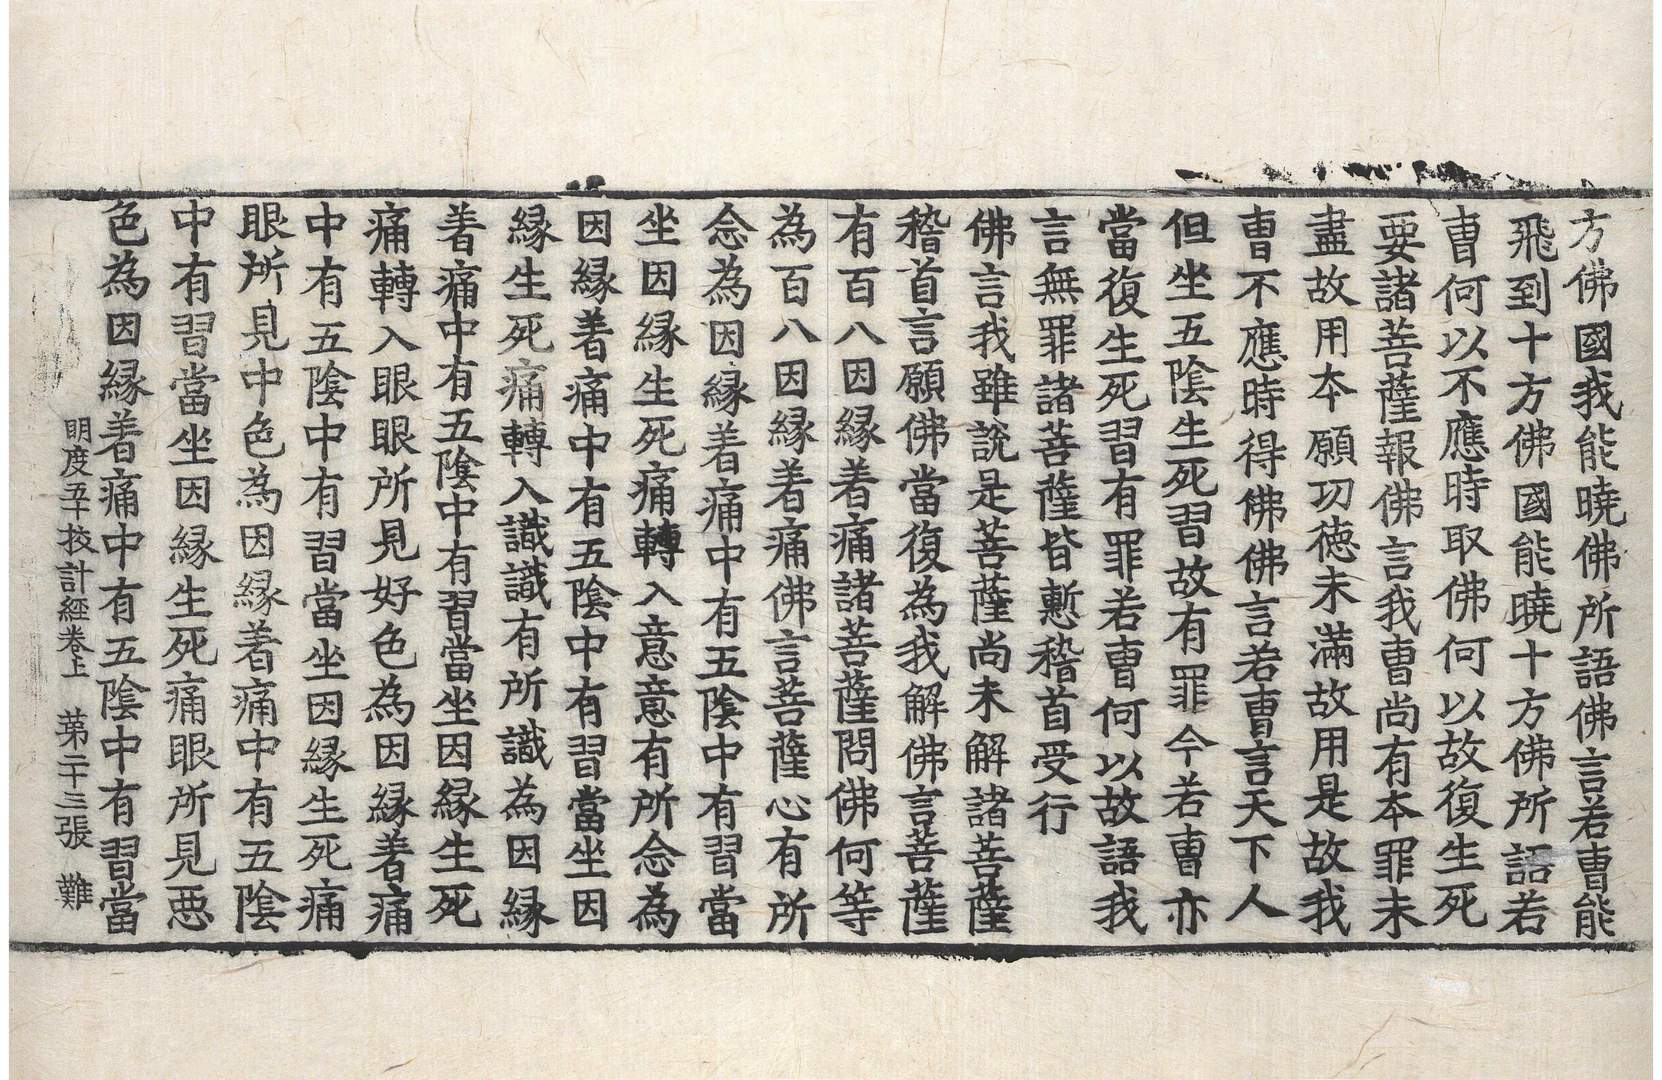 方佛國我能曉佛所語佛言若曺能
飛到十方佛國能曉十方佛所語若
曺何以不應時取佛何以故復生死
要諸菩薩報佛言我曺尚有本罪未
盡故用本願功德未滿故用是故我
曺不應時得佛佛言若曺言天下人
但坐五陰生死習故有罪今若曺亦
當復生死習有罪若曺何以故語我
言無罪諸菩薩皆慙稽首受行
佛言我雖說是菩薩尚未解諸菩薩
稽首言願佛當復為我解佛言菩薩
有百八因緣著痛諸菩薩問佛何等
為百八因緣著痛佛言菩薩心有所
念為因緣著痛中有五陰中有習當
坐因緣生死痛轉入意意有所念為
因緣著痛中有五陰中有習當坐因
緣生死痛轉入識識有所識為因緣
著痛中有五陰中有習當坐因緣生死
痛轉入眼眼所見好色為因緣著痛
中有五陰中有習當坐因緣生死痛
眼所見中色為因緣著痛中有五陰
中有習當坐因緣生死痛眼所見惡
色為因緣著痛中有五陰中有習當
明度五十挍計經卷上 第二十三張 難